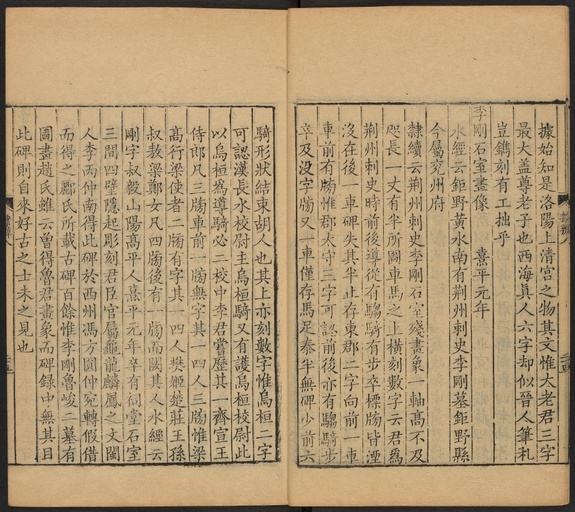 據始知是洛陽上清宮之物其文惟大老君三字
最大蓋尊老子也西海真人六字却似晉人筆札
豈鐫刻有工拙乎
李剛石室畫像 熹平元年
水經云鉅野黃水南有荆州刺史李剛墓鉅野縣
今屬兖州府
隸續云荆州刺史李剛石室殘畫象一軸高不及
咫長一丈有半所圖車馬之上橫刻數字云君爲
荆州刺史時前後導從有騶騎有步卒標牓皆湮
沒在後一車碑失其半止存東郡二字向前一車
車前有牓惟郡太守三字可認前後亦有騶騎步
卒及没字牓又一車僅存馬足泰半無碑少前六
騎形狀結束胡人也其上亦刻數字惟烏桓二字
可認漢長水校尉主烏桓騎又有護烏桓校尉此
以烏桓爲導騎必二校中李君嘗歷其一齋宣王
侍郎凡三牓車前一牓無字其一四人三牓惟梁
高行梁使者二牓有字其一四人樊姬楚莊王孫
叔敖梁鄭女凡四牓後有一牓而闕其人水經云
剛字叔毅山陽高平人熹平元年卒有祠堂石室
三間四壁隱起彫刻君臣官屬龜龍麟鳳之文閩
人李丙仲南得此碑於西州馮方圓仲宛轉假借
而得之酈氏所載古碑百餘惟李剛魯峻二墓有
圖畫趙氏雖云曾得魯君畫象而碑録中無其目
此碑則自來好古之士未之見也